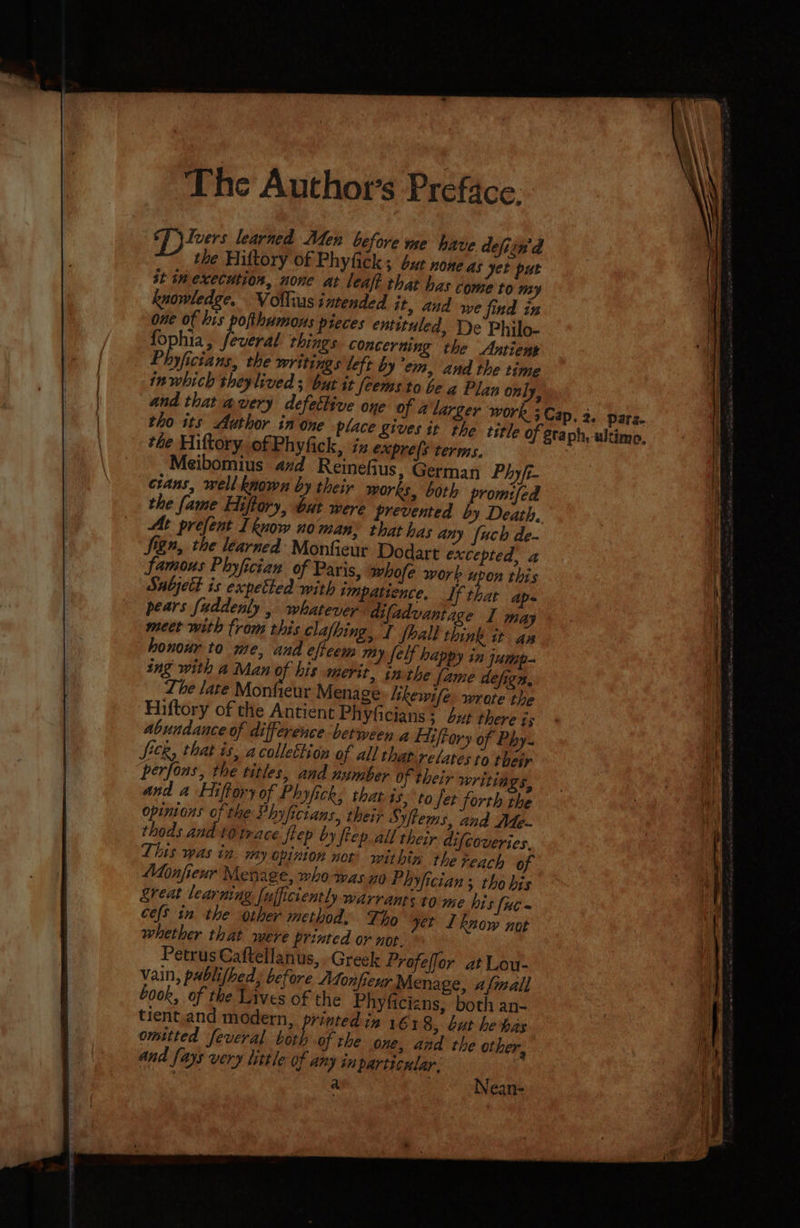 The Author's Preface.
DIvers learned Men before me have deſign'd
the Hiſtory of Phyſick; but none as yet put
it in execution, none at leaſt that has come to my
knowledge. Voſſius intended it, and we find in
one of his poſthumous pieces entituled, De Philo-
ſophia, ſeveral things concerning the Antient
Phyſicians, the writings left by 'em, and the time
in which they lived; but it ſeems to be a Plan only,
and that a very defective one of a larger work;
tho its Author in one place gives it the title of
the Hiſtory of Phyſick, in expreſs terms.
Cap. 2. para-
graph, ultimo.
Meibomius and Reineſius, German Phyſi-
cians, well known by their works, both promiſed
the ſame Hiſtory, but were prevented by Death.
At preſent I know no man, that has any ſuch de-
ſign, the learned Monſieur Dodart excepted, a
famous Phyſician of Paris, whoſe work upon this
Subject is expected with impatience. If that ap-
pears ſuddenly, whatever diſadvantage I may
meet with from this claſhing, I ſhall think it an
honour to me, and eſteem my ſelf happy in jump-
ing with a Man of his merit, in the ſame deſign.
The late Monſieur Menage likewiſe wrote the
Hiſtory of the Antient Phyſicians; but there is
abundance of difference between a Hiſtory of Phy-
ſick, that is, a collection of all that relates to their
perſons, the titles, and number of their writings,
and a Hiſtory of Phyſick; that is, to ſet forth the
opinions of the Phyſicians, their Syſtems, and Me-
thods and to trace ſtep by ſtep all their diſcoveries.
This was in my opinion not within the reach of
Monſieur Menage, who was no Phyſician; tho his
great learning ſufficiently warrants to me his ſuc-
ceſs in the other method. Tho yet I know not
whether that were printed or not.
Petrus Caſtellanus, Greek Profeſſor at Lou-
vain, publiſhed, before Monſieur Menage, a ſmall
book, of the Lives of the Phyſicians, both an-
tient and modern, printed in 1618, but he has
omitted ſeveral both of the one, and the other,
and ſays very little of any in particular.
a
Nean-